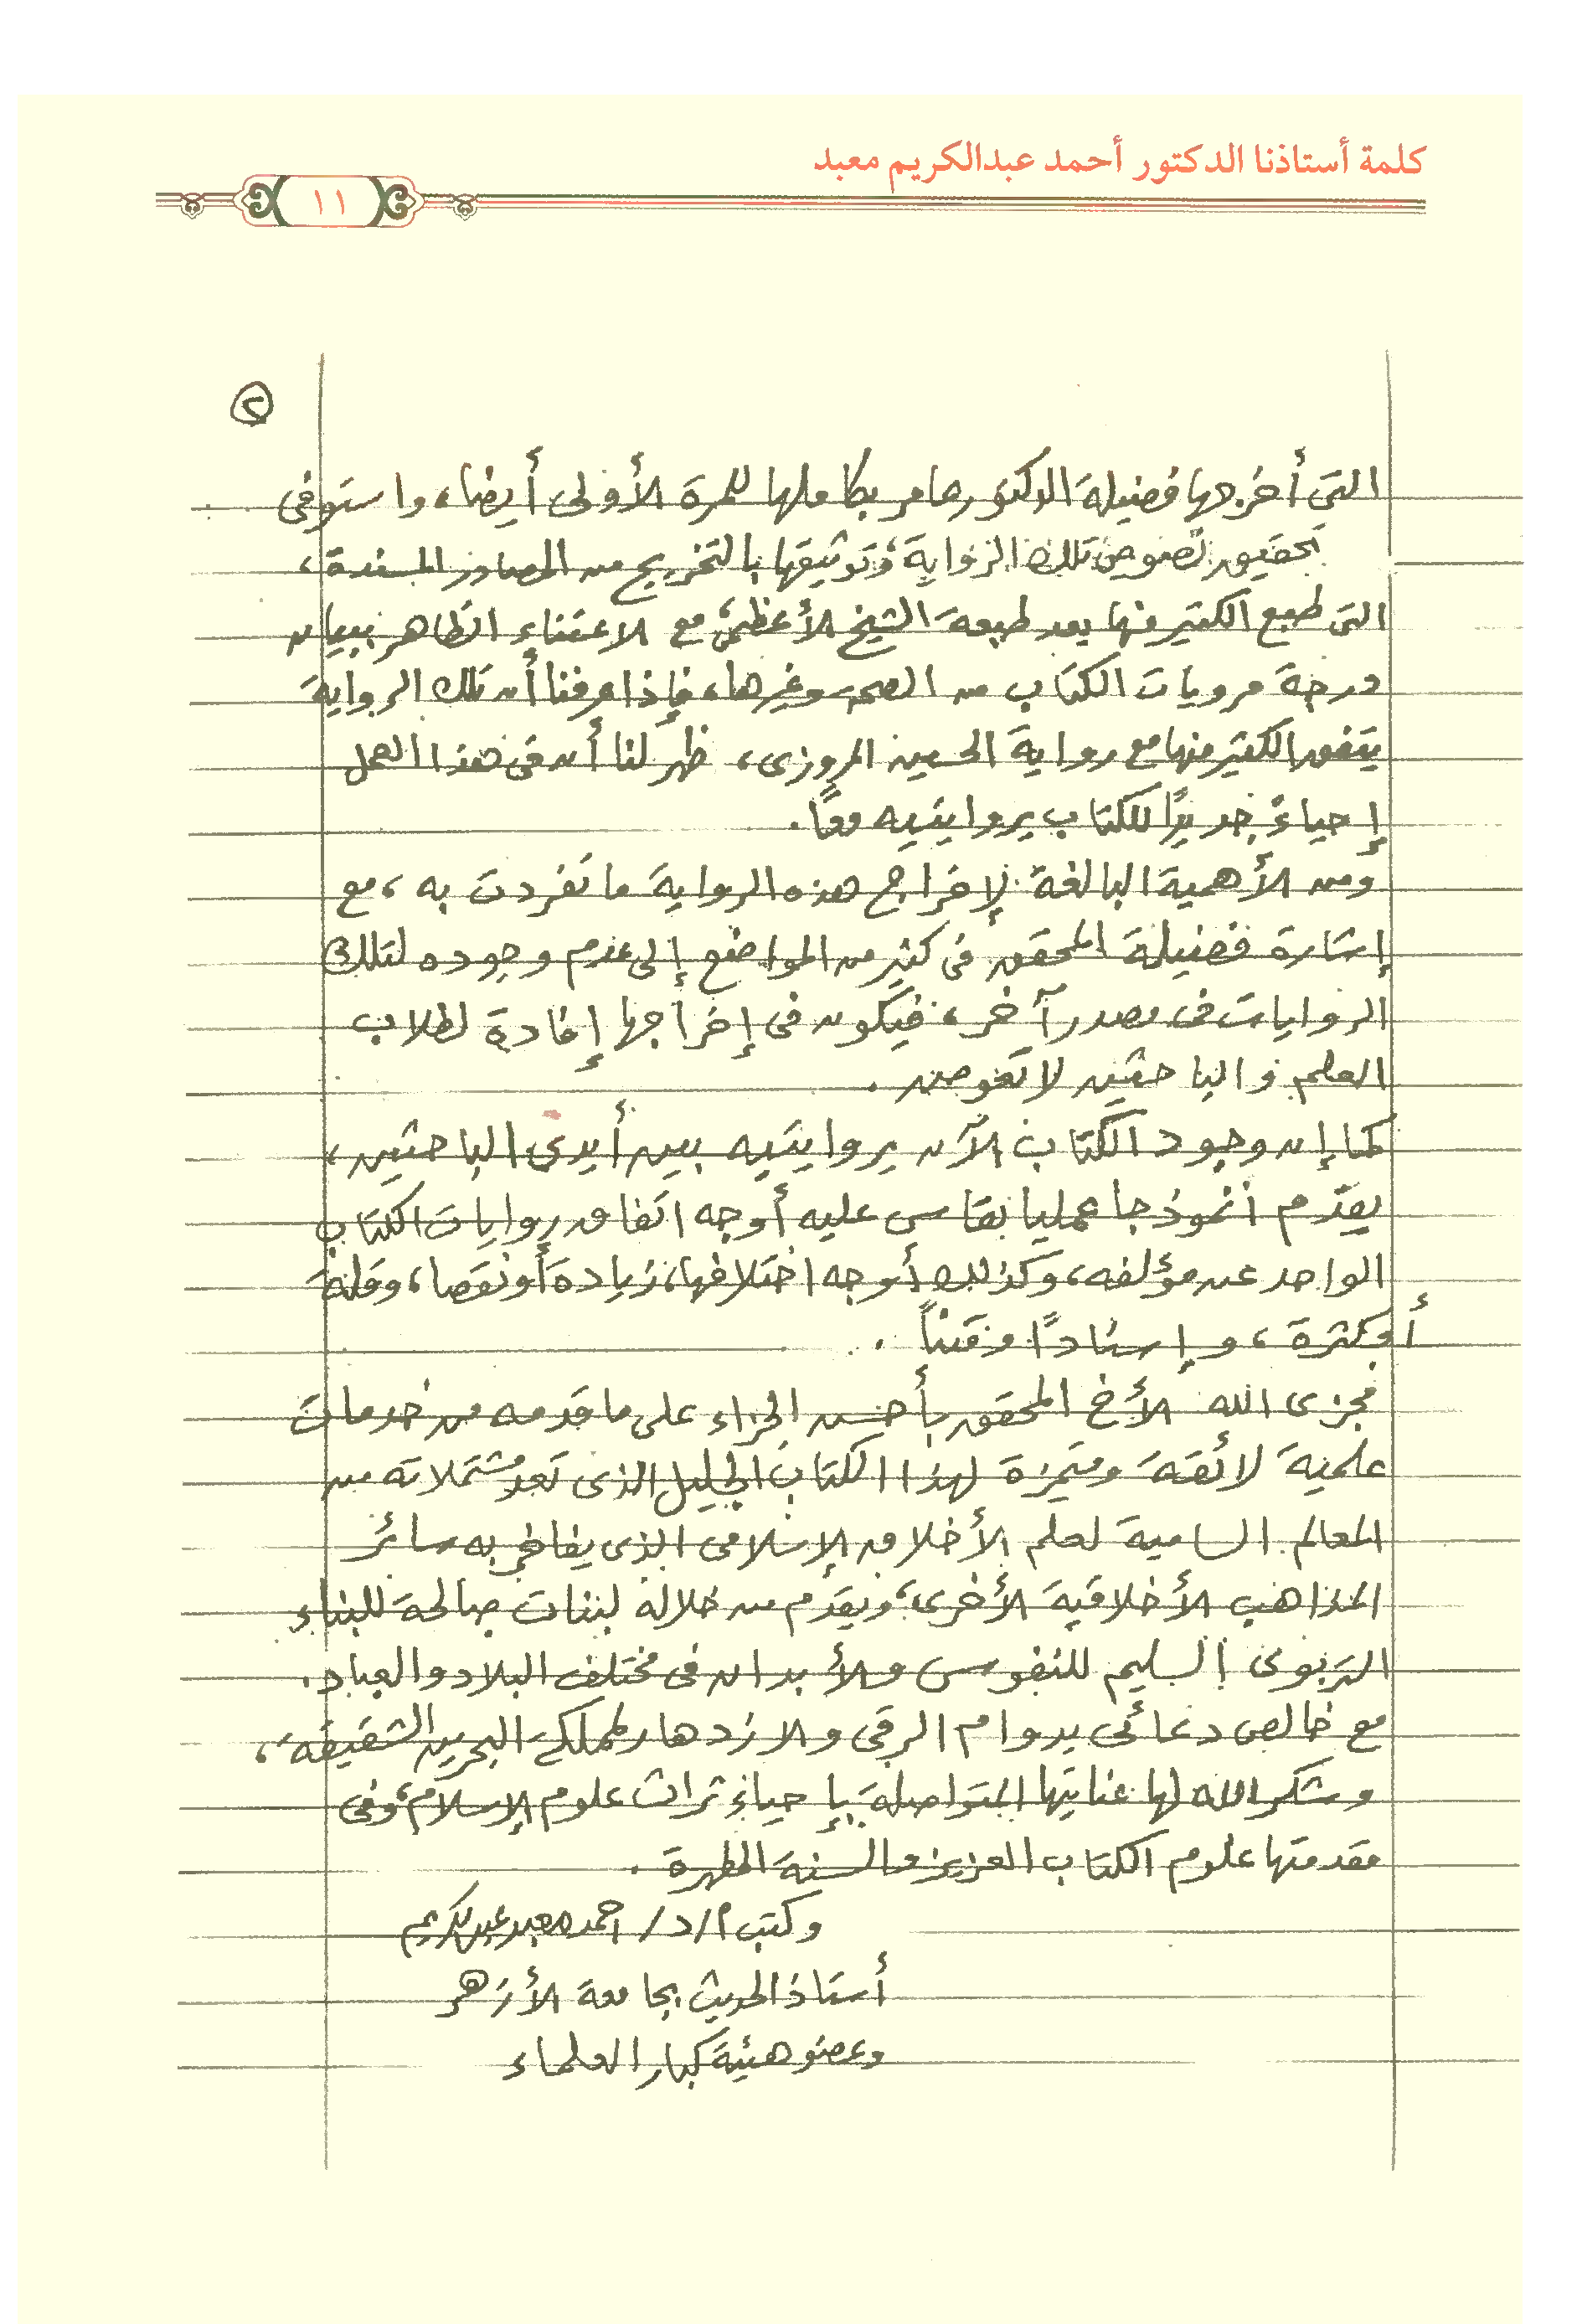 كلمة أستاذنا الدكتور أحمد عبدالكريم معبد
١١
٢
التى أخرجها فضيلة الدكتور عامر بكاملها للمرة الأولى أيضا، واستوفى
تحقيق نصوص تلك الرواية، وتوثيقها بالتخريج من المصادر المسندة،
التى طبع الكثير منها بعد طبعة الشيخ الأعظمى، مع الاعتناء الظاهر ببيان
درجة مرويات الكتاب من الصحة وغيرها، فإذا عرفنا أن تلك الرواية
يتفق الكثير منها مع رواية الحسين المروزى، ظهر لنا أن فى هذا العمل
إحياءً جديدًا للكتاب بروايتيه معًا.
ومن الأهمية البالغة لإخراج هذه الرواية ما تفردت به، مع
إشارة فضيلة المحقق فى كثير من المواضع إلى عدم وجوده لتلك
الروايات فى مصدر آخر، فيكون فى إخراجها إفادة لطلاب
العلم والباحثين لا تعوض.
كما إن وجود الكتاب الآن بروايتيه بين أيدى الباحثين،
يقدّم انموذجا عمليا يقاس عليه أوجه اتفاق روايات الكتاب
الواحد عن مؤلفه، وكذلك أوجه اختلافها، زيادة أو نقصا، وقلة
أو كثرة، وإسنادًا ومتنًا.
فجزى الله الأخ المحقق بأحسن الجزاء على ما قدمه من خدمات
علمية لائقة ومتميزة لهذا الكتاب الجليل الذى تعد مشتملاته من
المعالم السامية لعلم الأخلاق الإسلامى الذى يفاخر به سائر
المذاهب الأخلاقية الأخرى، ويقدم من خلاله لبنات صالحة للبناء
التربوى السليم للنفوس والأبدان فى مختلف البلاد والعباد.
مع خالص دعائى بدوام الرقى والازدهار لمملكة البحرين الشقيقة،
وشكر الله لها عنايتها المتواصلة بإحياء تراث علوم الإسلام، وفى
مقدمتها علوم الكتاب العزيز والسنة المطهرة.
وكتب أ/د/ احمد معبد عبدالكريم
أستاذ الحديث بجامعة الأزهر
وعضو هيئة كبار العلماء